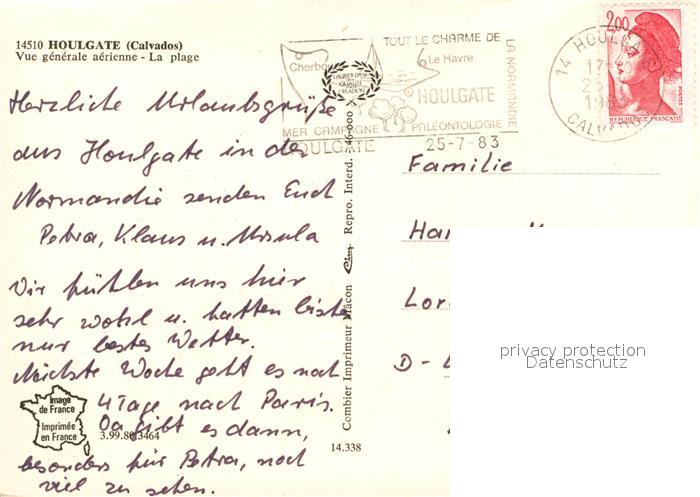 14510 HOULGATE (Calvados)
Vue générale aérienne - La plage
Herzliche Urlaubsgrüße
aus Houlgate in der
Normandie senden Euch
Petra, Klaus u. Ursula
Wir fühlen uns hier
sehr wohl u. hatten bisher
nur bestes Wetter.
Nächste Woche geht es noch
4 Tage nach Paris.
Da gibt es dann,
besonders für Petra, noch
viel zu sehen.
Image
de France
Imprimée
en France
3.99.80.3464
14.338
Combier Imprimeur Mâcon Cim Repro. Interd.
TOUT LE CHARME DE
LA NORMANDIE
Cherbourg
Le Havre
HOULGATE
MER CAMPAGNE PALÉONTOLOGIE
HOULGATE 25-7-83
14 HOULGATE
1983
CALVADOS
2,00
POSTES
REPUBLIQUE FRANÇAISE
Familie
D-
privacy protection
Datenschutz